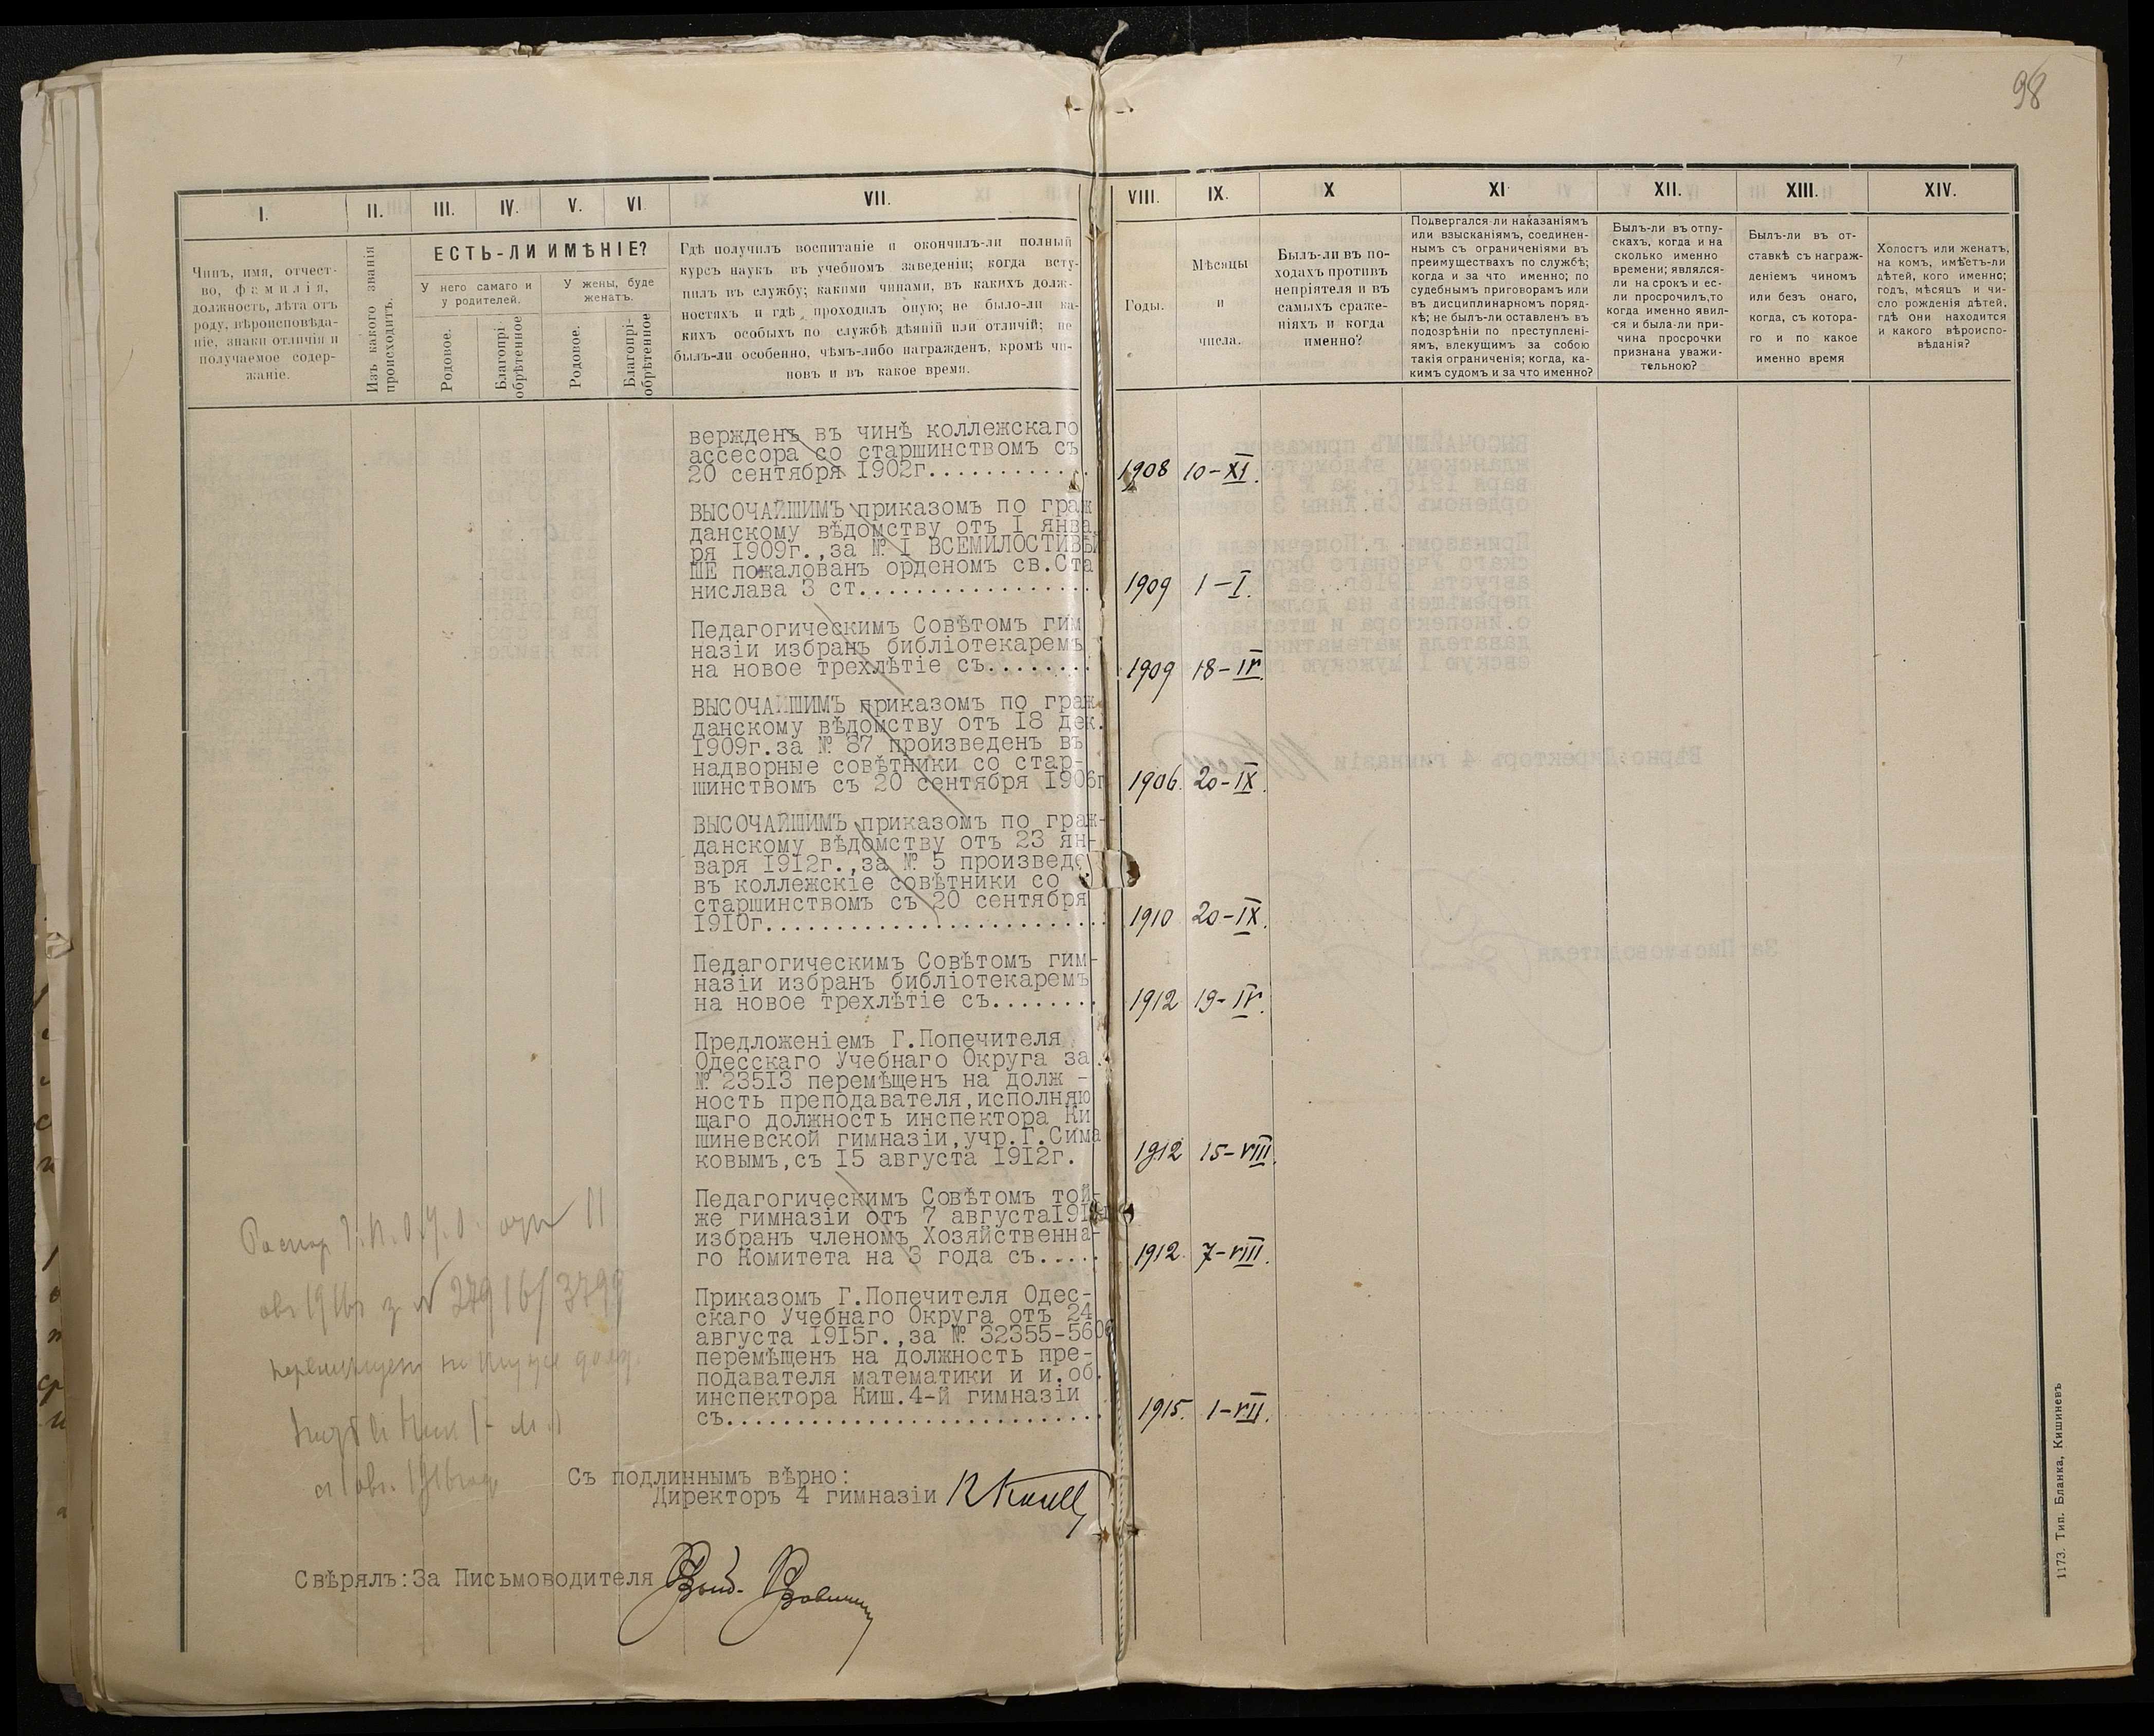 98
I. II. III. IV. V. VI. VII. VIII. IX. X XI XII. XIII. XIV.
Чинъ, имя, отчест-
во, фамилія,
должность, лѣта отъ
роду, вѣроисповѣда-
ніе, знаки отличія и
получаемое содер-
жаніе.
Изъ какого званія
происходитъ.
ЕСТЬ-ЛИ ИМѢНІЕ?
У него самаго и
у родителей.
У жены, буде
женатъ.
Родовое.
Благопрі-
обрѣтенное
Родовое.
Благопрі-
обрѣтенное
Гдѣ получилъ воспитаніе и окончилъ-ли полный
курсъ наукъ въ учебномъ заведеніи; когда всту-
пилъ въ службу; какими чинами, въ какихъ долж-
ностяхъ и гдѣ проходилъ оную; не было-ли ка-
кихъ особыхъ по службѣ дѣяній или отличій; не
былъ-ли особенно, чѣмъ-либо награжденъ, кромѣ чи-
новъ и въ какое время.
Годы.
Мѣсяцы
и
числа.
Былъ-ли въ по-
ходахъ противъ
непріятеля и въ
самыхъ сраже-
ніяхъ и когда
именно?
Подвергался-ли наказаніямъ
или взысканіямъ, соединен-
нымъ съ ограниченіями въ
преимуществахъ по службѣ;
когда и за что именно; по
судебнымъ приговорамъ или
въ дисциплинарномъ поряд-
кѣ; не былъ-ли оставленъ въ
подозрѣніи по преступлені-
ямъ, влекущимъ за собою
такія ограниченія; когда, ка-
кимъ судомъ и за что именно?
Былъ-ли въ отпу-
скахъ, когда и на
сколько именно
времени; являлся-
ли на срокъ и ес-
ли просрочилъ, то
когда именно явил-
ся и была-ли при-
чина просрочки
признана уважи-
тельною?
Былъ-ли въ от-
ставкѣ съ награж-
деніемъ чиномъ
или безъ онаго,
когда, съ котора-
го и по какое
именно время
Холостъ или женатъ,
на комъ, имѣетъ-ли
дѣтей, кого именно;
годъ, мѣсяцъ и чи-
сло рожденія дѣтей,
гдѣ они находятся
и какого вѣроиспо-
вѣданія?
вержденъ въ чинѣ коллежскаго
ассесора со старшинствомъ съ
20 сентября 1902г............ 1908 10-XI.
ВЫСОЧАЙШИМЪ приказомъ по граж
данскому вѣдомству отъ I янва
ря 1909г.,за № I ВСЕМИЛОСТИВѢЙ
ШЕ пожалованъ орденомъ св.Ста
нислава 3 ст................. 1909 1-I.
Педагогическимъ Совѣтомъ гим
назіи избранъ библіотекаремъ
на новое трехлѣтіе съ........ 1909 18-IV.
ВЫСОЧАЙШИМЪ приказомъ по граж
данскому вѣдомству отъ 18 дек.
1909г.за № 87 произведенъ въ
надворные совѣтники со стар-
шинствомъ съ 20 сентября 1906г 1906. 20-IX.
ВЫСОЧАЙШИМЪ приказомъ по граж-
данскому вѣдомству отъ 23 ян-
варя 1912г.,за № 5 произведе
въ коллежскіе совѣтники со
старшинством съ 20 сентября
1910г........................ 1910 20-IX.
Педагогическимъ Совѣтомъ гим-
назіи избранъ библіотекаремъ
на новое трехлѣтіе съ........ 1912 19-IV.
Предложеніемъ Г.Попечителя
Одесскаго Учебнаго Округа за
№ 23513 перемѣщенъ на долж -
ность преподавателя,исполняю
щаго должность инспектора Ки
шиневской гимназіи,учр.Г.Сима
ковымъ,съ 15 августа 1912г. 1912 15-VIII.
Педагогическимъ Совѣтомъ той-
же гимназіи отъ 7 августа191
избранъ членомъ Хозяйственна-
го Комитета на 3 года съ..... 1912. 7-VIII.
Приказомъ Г.Попечителя Одес-
скаго Учебнаго Округа отъ 24
августа 1915г.,за № 32355-560
перемѣщенъ на должность пре-
подавателя математики и и.об.
инспектора Киш.4-й гимназіи
съ........................... 1915. 1-VII.
11
1916 № 27916/3799
Съ подлиннымъ вѣрно:
Директоръ 4 гимназіи
Свѣрялъ:За Письмоводителя
1173. Тип. Бланка, Кишиневъ